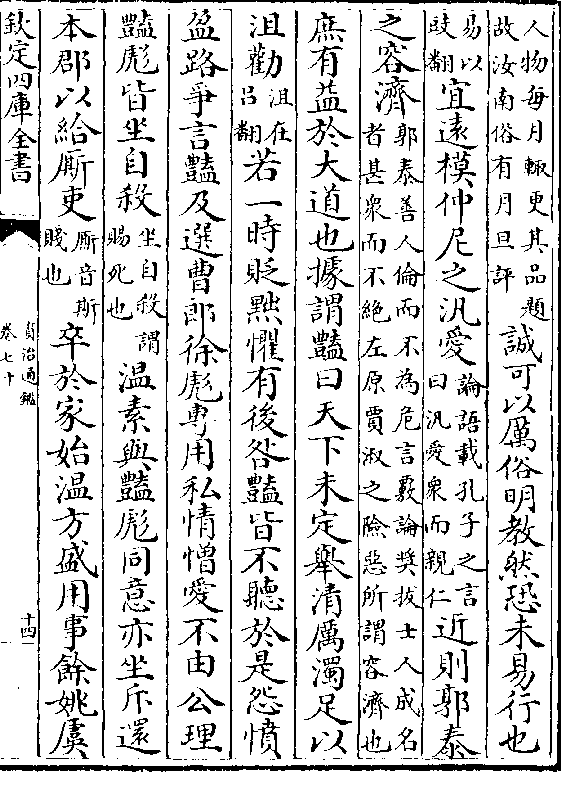 人物每月輒更其品題
故汝南俗有月旦評
誠可以厲俗明教然恐未易行也
易以
豉翻
宜遠模仲尼之汎愛
論語載孔子之言
曰汎愛衆而親仁
近則郭泰
之容濟
郭泰善人倫而不為危言覈論奬拔士人成名
者甚衆而不絶左原賈淑之險惡所謂容濟也
庶有益於大道也據謂豔曰天下未定舉清厲濁足以
沮勸
沮在
吕翻
若一時貶黜懼有後咎豔皆不聽於是怨憤
盈路爭言豔及選曹郎徐彪專用私情憎愛不由公理
豔彪皆坐自殺
坐自殺謂
賜死也
温素與豔彪同意亦坐斥還
本郡以給厮吏
厮音斯
賤也
卒於家始温方盛用事餘姚虞
欽定四庫全書
資治通鑑
卷七十
十四